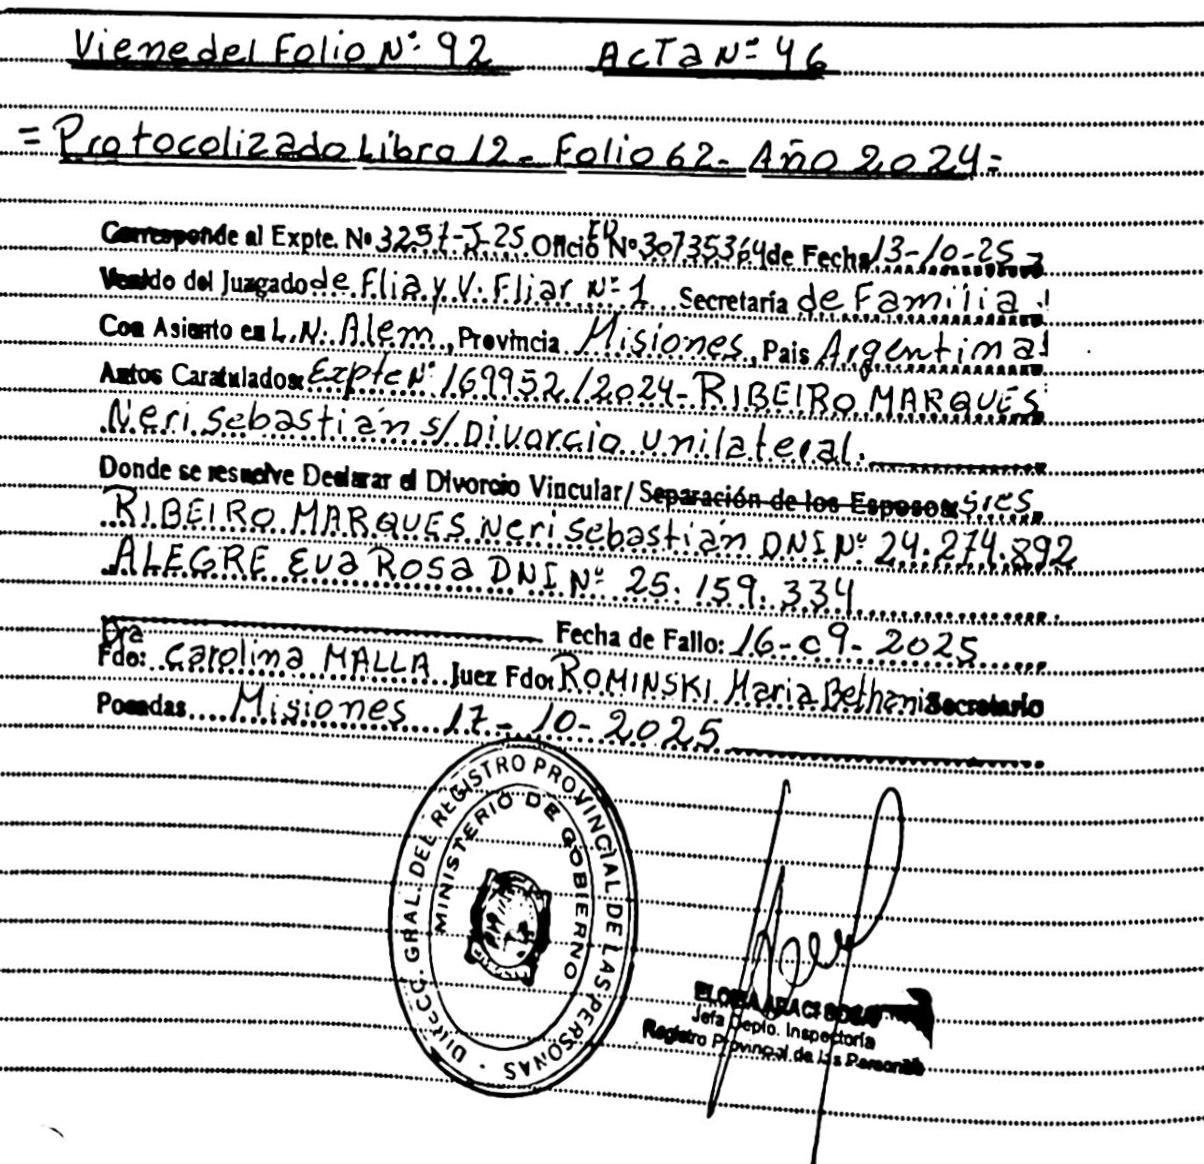 Viene del Folio Nº 92 Acta Nº 46
= Protocolizado Libro 12 - Folio 62 - Año 2024 =
Corresponde al Expte. Nº 3257-J-25 Oficio ED Nº 30735364 de Fecha 13-10-25
Venido del Juzgado de Flia y V. Fliar Nº 1 Secretaría de Familia
Con Asiento en L.N. Alem, Provincia Misiones, Pais Argentina
Autos Caratulados: Expte Nº 169952/2024 - RIBEIRO MARQUES
Neri Sebastián s/ Divorcio Unilateral.
Donde se resuelve Declarar el Divorcio Vincular/ Separación de los Esposos: Sres.
RIBEIRO MARQUES Neri Sebastián DNI Nº 24.274.892
ALEGRE Eva Rosa DNI Nº 25.159.334
Fecha de Fallo: 16-09-2025
Dra
Fdo: Carolina MALLA Juez Fdo: ROMINSKI Maria Bethani Secretario
Posadas Misiones 17-10-2025
DIRECC. GRAL. DEL REGISTRO PROVINCIAL DE LAS PERSONAS
MINISTERIO DE GOBIERNO
Jefa Depto. Inspectoría
Registro Provincial de las Personas